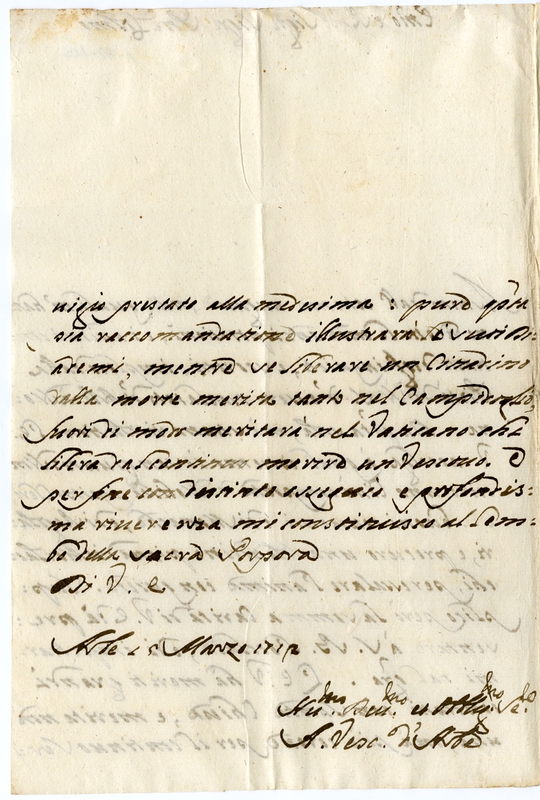 uigio prestato alla medesima : pure q.sta
sua raccomandatione illustrarà i suoi Di
ademi, mentre se liberare un Cittadino
dalla morte merita tanto nel Campidoglio,
fuor di modo meritarà nel Vaticano chi
libera dal continuo morire un Vescouo. E
per fine con distinto ossequio e profondis=
ma riuerenza mi constituisco al Lem=
bo della sacra Porpora
Di V. E.
Arbe 15 Marzo
Hu.mo Deu.mo et Obblig.mo Se.do
A. Vesc. d'Arbe